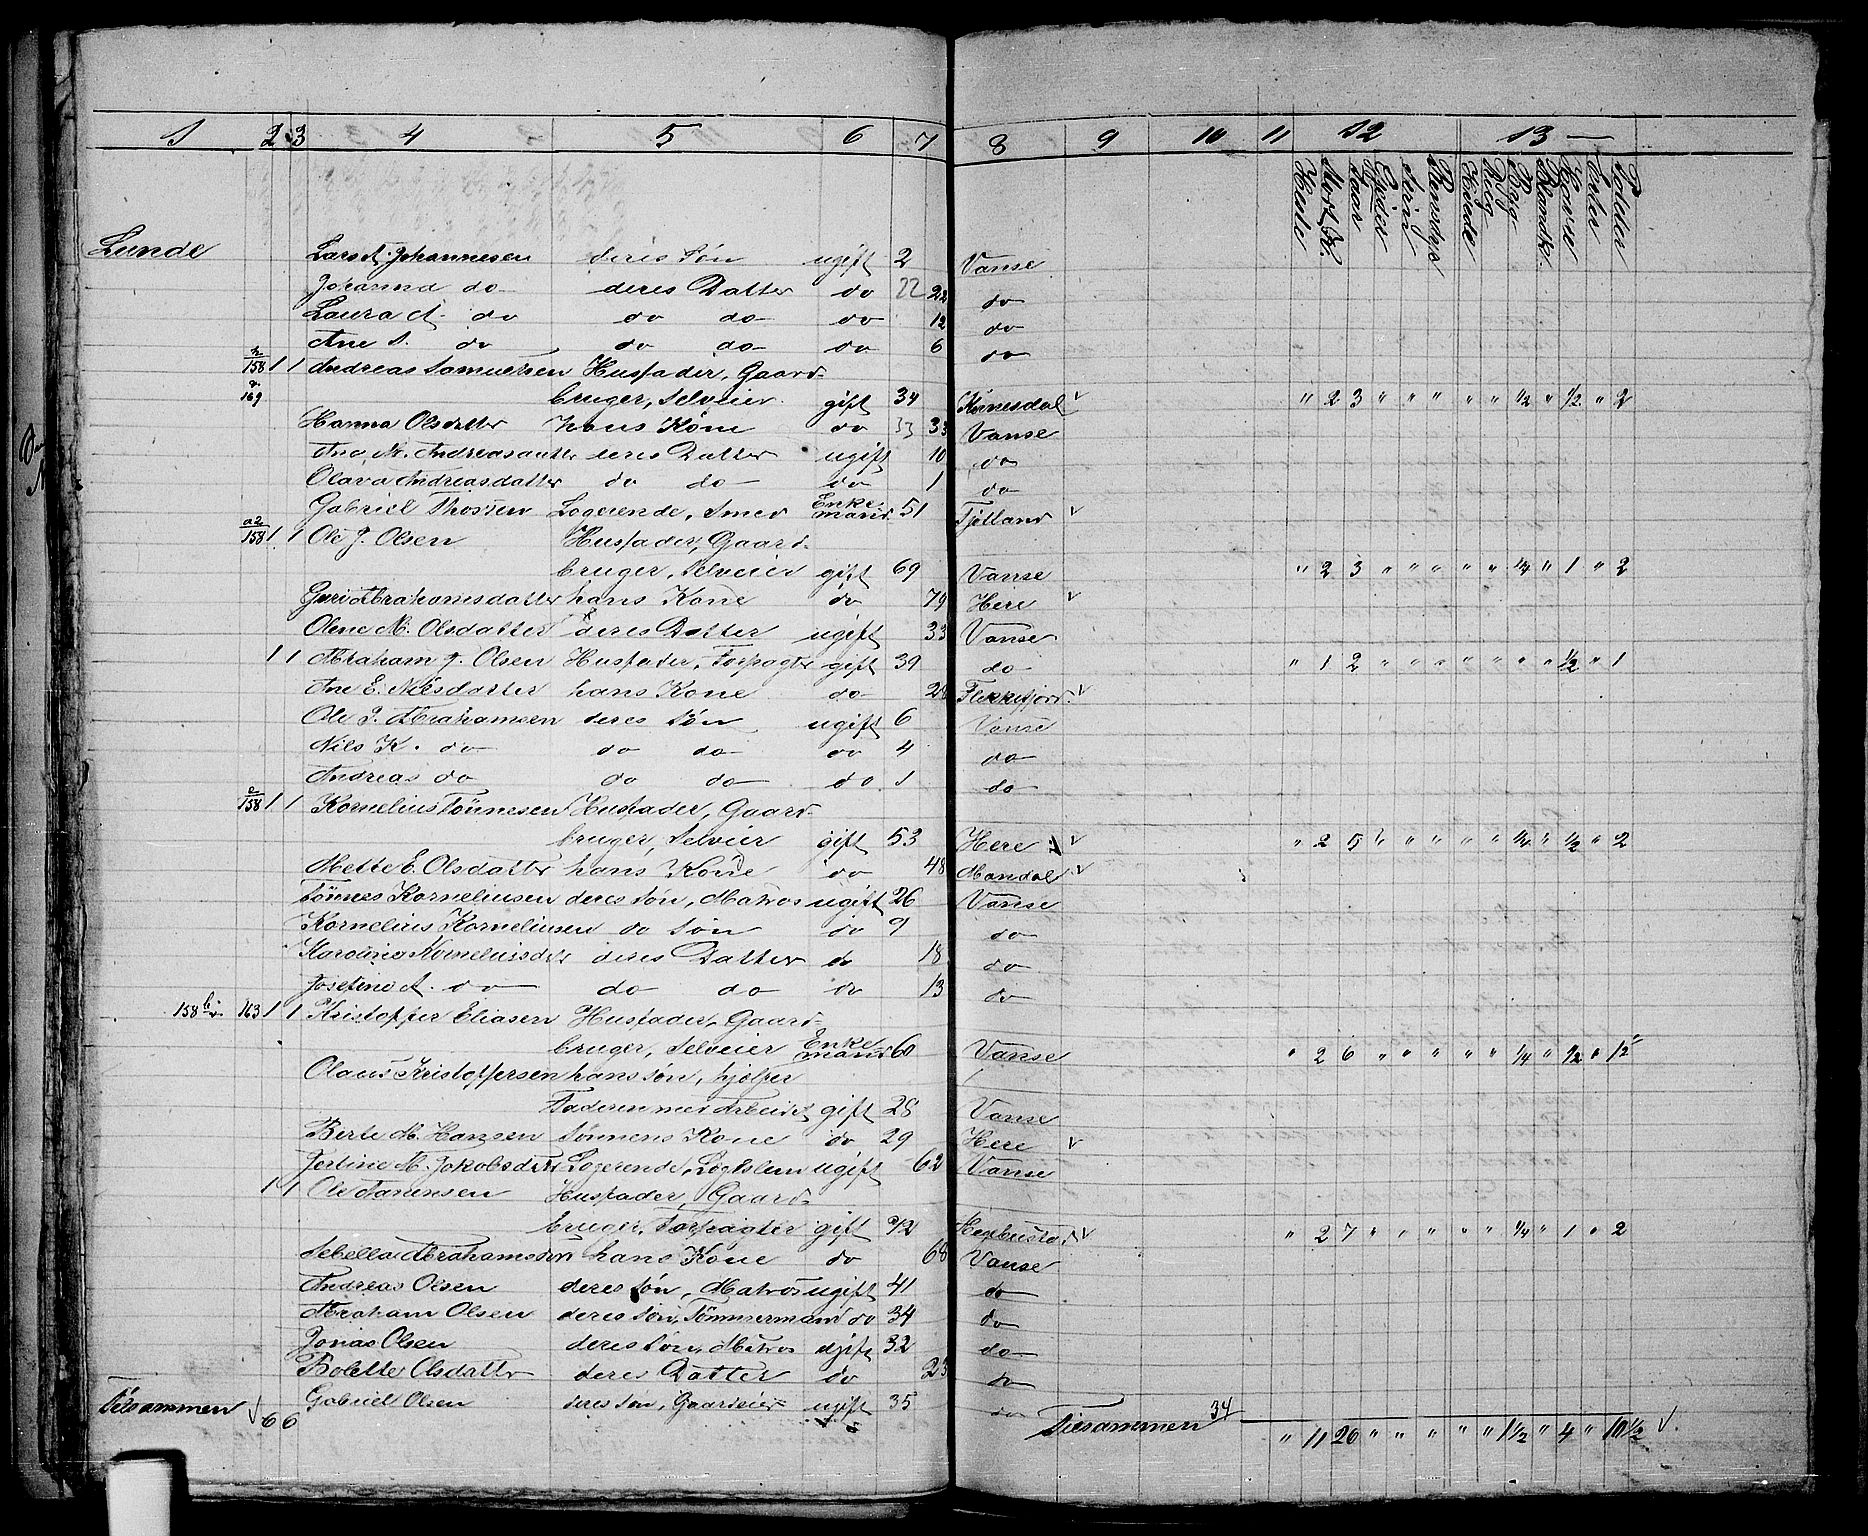 1 2 3 4 5 6 7 8 9 10 11 12 13
Heste Stort Kv. Faar Gjeder Sviin Rensdyr Hvede Rug Byg Blandk. Havre Erter Poteter
Lunde Lars A. Johannesen deres Søn ugift 2 Vanse
Johanna do deres Datter do 22 22 do
Laura A. do do do do 12 do
Ane S. do do do do 6 do
158 1 1 Andreas Samuelsen Husfader, Gaard-
169 bruger, Selveier gift 34 Kvinesdal v " 2 3 " " " " " 1/2 " 1/2 " 2
Hanna Olsdatter hans Kone do 33 33 Vanse
Ane M. Andreasdatter deres Datter ugift 10 do
Olava Andreasdatter do do do 1 do
Gabriel Thorsen Logerende, Smed Enkemand 51 Fjotland v
a2 158 1 1 Ole J. Olsen Husfader, Gaard-
bruger, Selveier gift 69 Vanse " 2 3 " " " " " 1/4 " 1 " 2
Guri Abrahamsdatter hans Kone do 79 Here v
Olene M. Olsdatter deres Datter ugift 33 Vanse
1 1 Abraham J. Olsen Husfader, Forpagter gift 39 do " 1 2 " " " " " " " 1/2 " 1
Ane E. Nilsdatter hans Kone do 28 Flekkefjord v
Ole J. Abrahamsen deres Søn ugift 6 Vanse
Nils K. do do do do 4 do
Andreas do do do do 1 do
158 1 1 Kornelius Tønnesen Husfader, Gaard-
bruger, Selveier gift 53 Here v " 2 5 " " " " " 1/4 " 1/2 " 2
Mette E. Olsdatter hans Kone do 48 Mandal v
Tønnes Korneliusen deres Søn, Matros ugift 26 Vanse
Kornelius Korneliusen do Søn do 9 do
Karolina Korneliusdtr deres Datter do 18 do
Josefine A. do do do do 13 do
158 b 163 1 1 Kristoffer Eliasen Husfader, Gaard-
bruger, Selveier Enkemand 60 Vanse " 2 6 " " " " " 1/4 " 1/2 " 1 1/2
Olaus Kristoffersen hans Søn, hjelper
Faderen med Arbeidet gift 28 Vanse
Berte M. Hansen Sønnens Kone do 29 Here v
Jertine M. Jakobsdtr Logerende, Løgtslem ugift 62 Vanse
1 1 Ole Tanensen Husfader, Gaard-
bruger, Forpagter gift 72 Hegebustad v " 2 7 " " " " " 1/4 " 1 " 2
Sebella Abrahamsdtr hans Kone do 68 Vanse
Andreas Olsen deres Søn, Matros ugift 41 do
Abraham Olsen deres Søn, Tømmermand do 34 do
Jonas Olsen deres Søn, Matros ugift 32 do
Bolette Olsdatter deres Datter do 23 do
Gabriel Olsen deres Søn, Gaardeier ugift 35 do
Tilsammen v 6 6 Tilsammen 34 " 11 26 " " " " " 1 1/2 " 4 " 10 1/2 v.